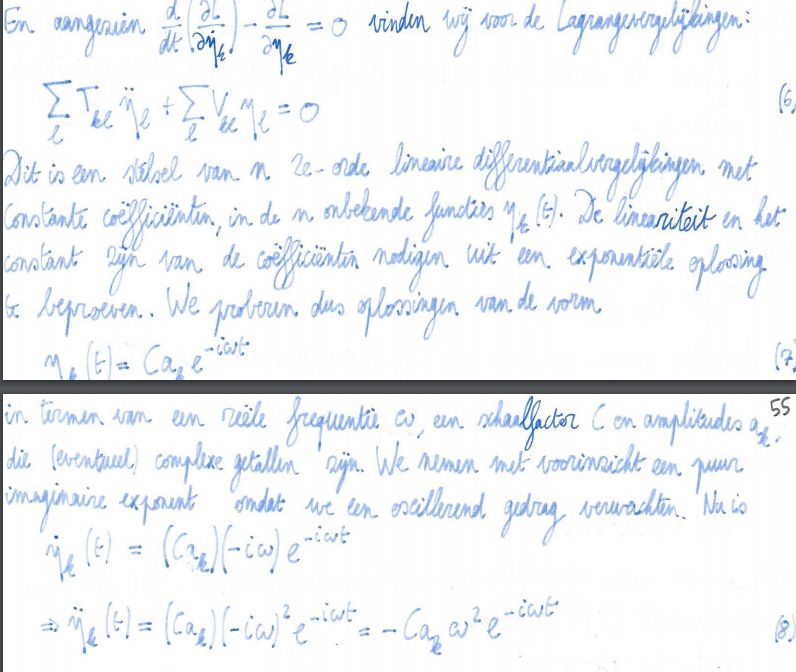 En aangezien d/dt (∂L/∂η̇_k) - ∂L/∂η_k = 0 vinden wij voor de Lagrangevergelijkingen:
∑_l T_kl η̈_l + ∑_l V_kl η_l = 0 (6)
Dit is een stelsel van n 2e-orde lineaire differentiaalvergelijkingen met
constante coëfficiënten, in de n onbekende functies η_k(t). De lineariteit en het
constant zijn van de coëfficiënten nodigen uit een exponentiële oplossing
te beproeven. We proberen dus oplossingen van de vorm
η_k(t) = C a_k e^{-iωt} (7)
55
in termen van een reële frequentie ω, een schaalfactor C en amplitudes a_k,
die (eventueel) complexe getallen zijn. We nemen met voorinzicht een puur
imaginaire exponent omdat we een oscillerend gedrag verwachten. Nu is
η̇_k(t) = (Ca_k)(-iω) e^{-iωt}
⇒ η̈_k(t) = (Ca_k)(-iω)² e^{-iωt} = - Ca_k ω² e^{-iωt} (8)